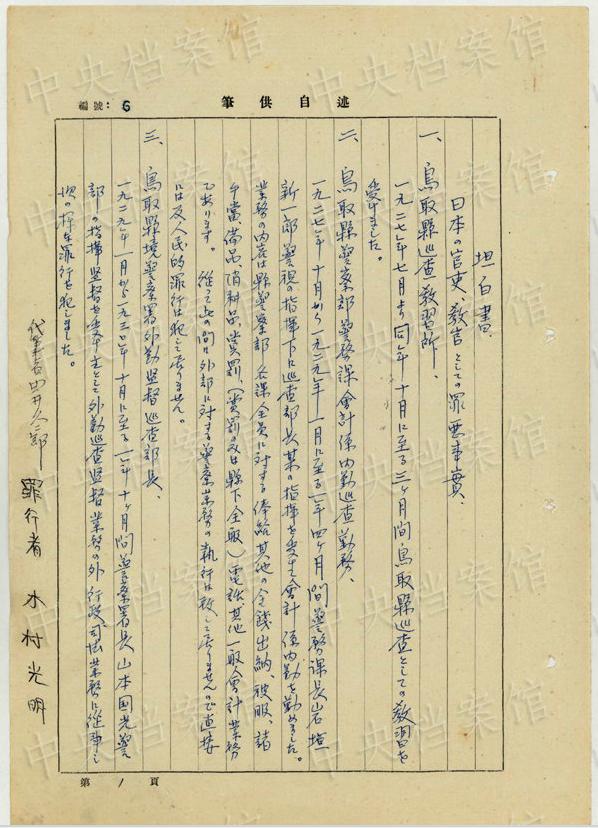 述自供筆
編號：6
坦白書
日本の官吏、教官としての罪悪事實、
一、鳥取縣巡查教習所、
一九二七年七月より同年十月に至る三ヶ月間鳥取縣巡查としての教習を
受けました。
二、鳥取縣警察部警務課會計係内勤巡查勤務、
一九二七年十月から一九二九年一月に至る一年四ヶ月間警務課長岩垣
新一郎警視の指揮下に巡查部長某の指揮を受け會計係内勤を勤めました。
業務の内容は縣警察部各課全員に対する俸給其他の金錢出納、被服、諸
手當、備品、消耗品、賞罰、(賞罰の又は縣下全般)電話其他一般会計業務
であります。従って此の間は外部に対する警察業務の執行は致して居りませんので直接
には反人民的罪行は犯して居りません。
三、鳥取縣境警察署外勤監督巡查部長、
一九二九年一月から一九三〇年十月に至る一年十ヶ月間警察署長山本国光警
部の指揮監督を受け主として外勤巡查監督業務の外行政司法業務に従事し
次の様な罪行を犯しました。
代筆者 井久二郎
罪行者 木村光明
第 1 頁
中央档案馆